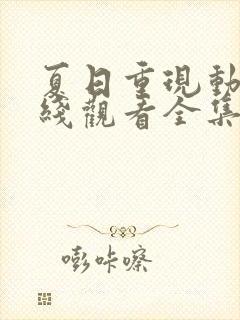 夏日重現動
綫觀看全集
嘭咔嚓